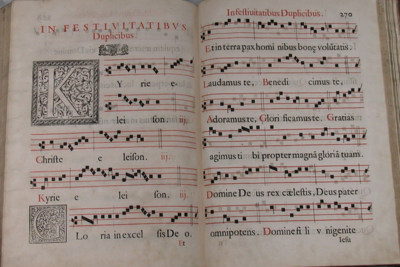 IN FESTIVITATIBVS
Duplicibus.
KYrie e-
lei son. iij.
Christe e leison. iij.
Kyrie e lei son. iij.
GLo ria in excel sis De o.
In festiuitatibus Duplicibus. 270
Et in terra pax homi nibus bonę volūtatis.
Laudamus te. Benedi cimus te.
Adoramus te. Glori ficamus te. Gratias
agimus ti bi propter magnā gloriā tuam.
Domine De us rex cælestis, Deus pater
omnipotens. Domine fi li v nigenite
Iesu